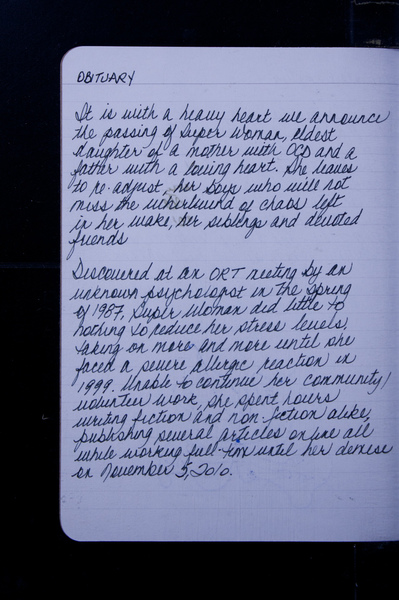 OBITUARY
It is with a heavy heart we announce
the passing of Super Woman, eldest
daughter of a mother with OCD and a
father with a loving heart. She leaves
to re-adjust, her boys who will not
miss the whirlwind of chaos left
in her wake, her siblings and devoted
friends
Discovered at an ORT meeting by an
unknown psychologist in the Spring
of 1987, Super Woman did little to
nothing to reduce her stress levels,
taking on more and more until she
faced a severe allergic reaction in
1999. Unable to continue her community/
volunteer work, she spent hours
writing fiction and non-fiction alike,
publishing several articles online all
while working full-time until her demise
on November 5, 2010.